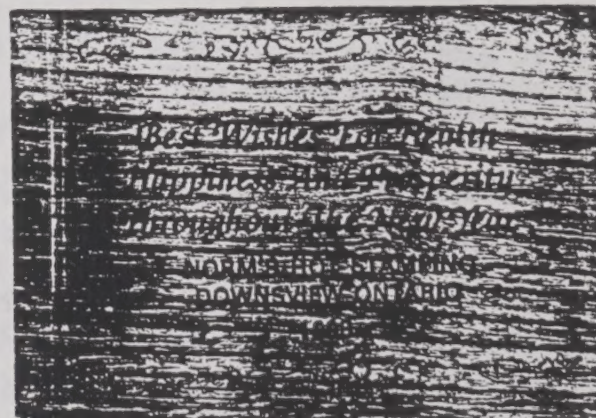 Best Wishes For Health
Happiness And Prosperity
Throughout The New Year
NORM'S HOT STAMPING
DOWNSVIEW ONTARIO